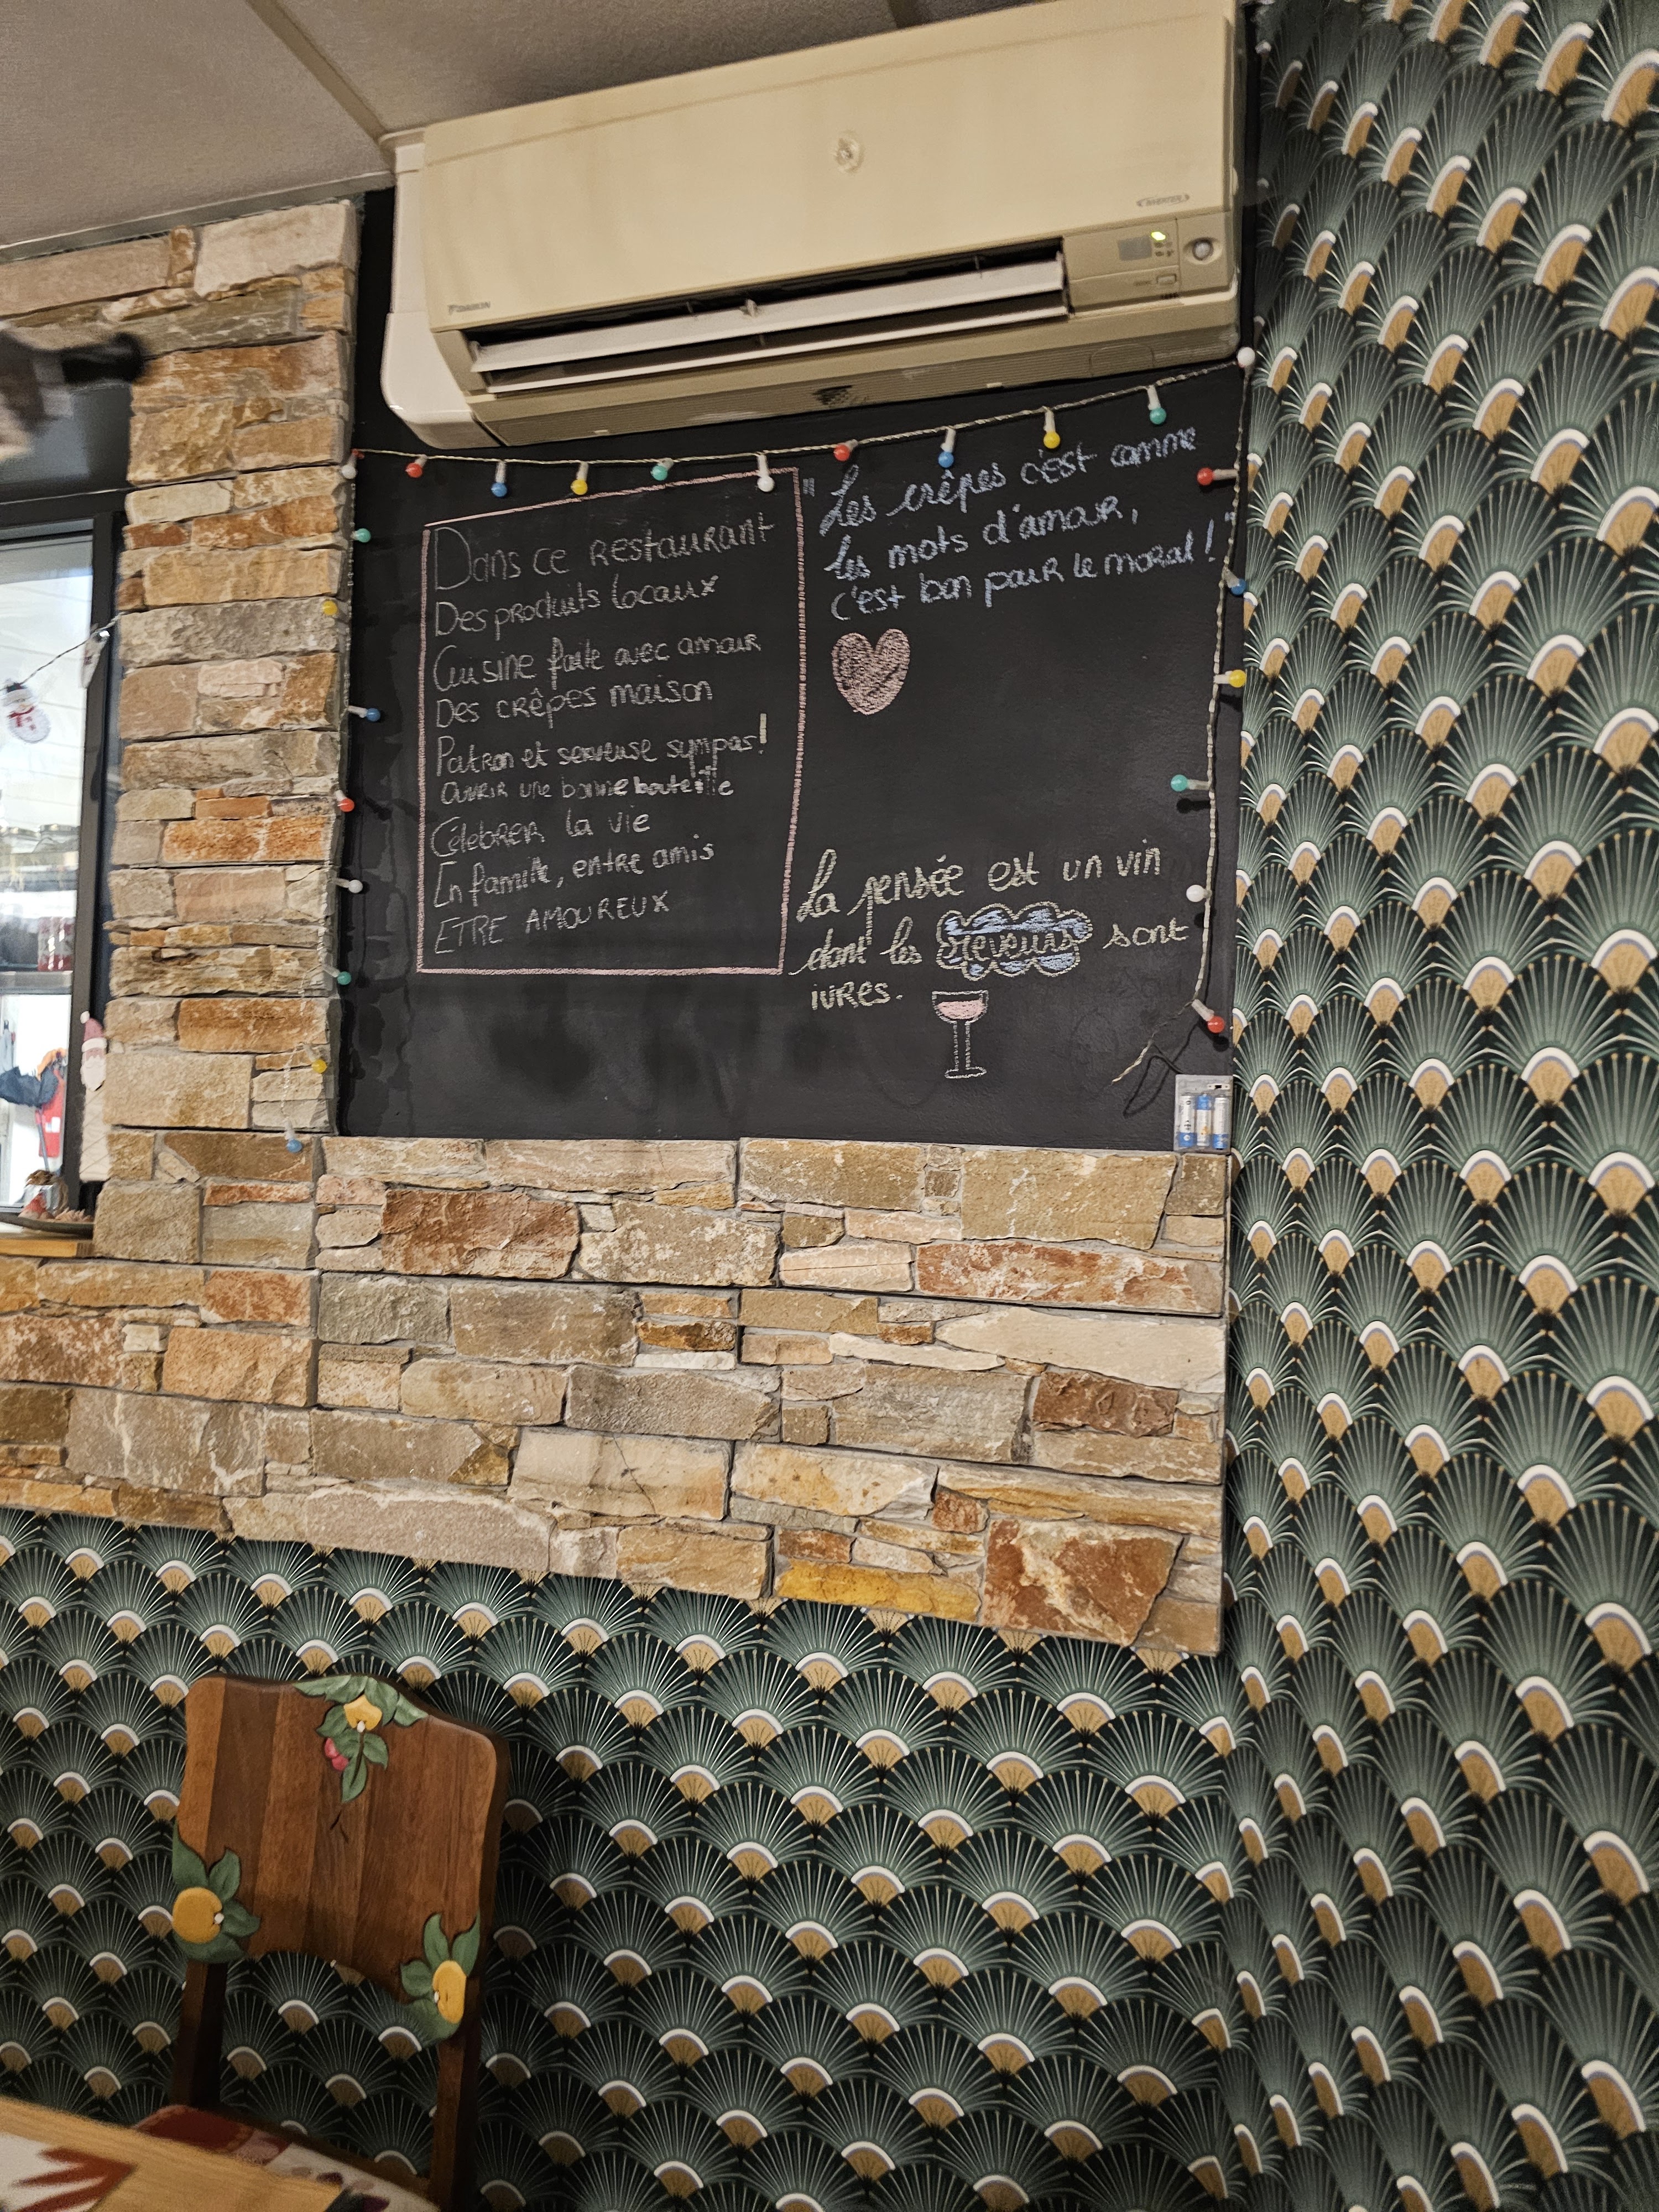 DAIKIN
INVERTER
Dans ce restaurant
Des produits locaux
Cuisine faite avec amour
Des crêpes maison
Patron et serveuse sympas!
ouvrir une bonne bouteille
Célébrer la vie
En famille, entre amis
ETRE AMOUREUX
"Les crêpes c'est comme
les mots d'amour,
c'est bon pour le moral!"
La pensée est un vin
dont les rêveurs sont
ivres.